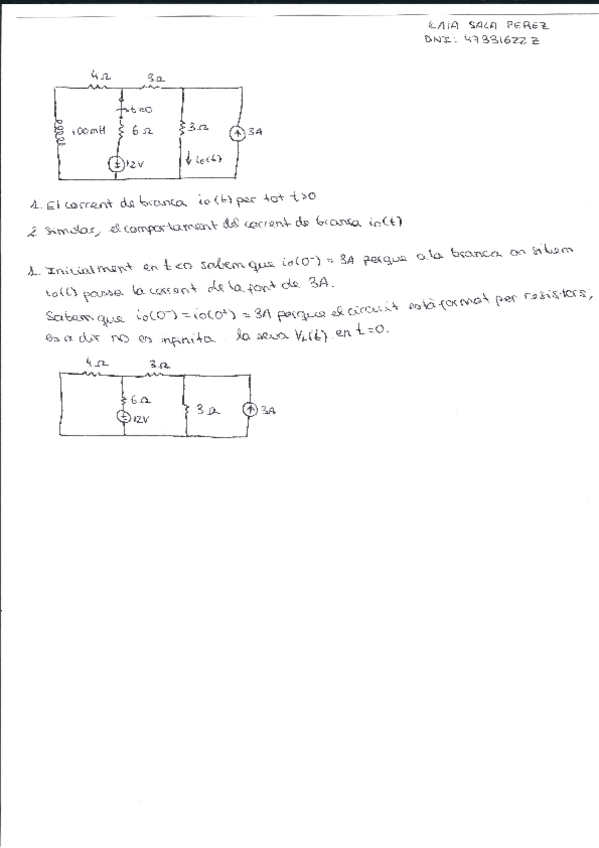 LAIA SALA PEREZ
DNI: 47331622Z
4Ω 3Ω
t=0
100mH 6Ω 3Ω 3A
12V io(t)
1. El corrent de branca io(t) per tot t>0
2. Simular, el comportament del corrent de branca io(t)
1. Inicialment en t<0 sabem que io(0⁻) = 3A perque a la branca on situem
io(t) passa la corrent de la font de 3A.
Sabem que io(0⁻) = io(0⁺) = 3A perque el circuit està format per resistors,
es a dir no es infinita la seva VL(t) en t=0.
4Ω 3Ω
6Ω
12V 3Ω 3A